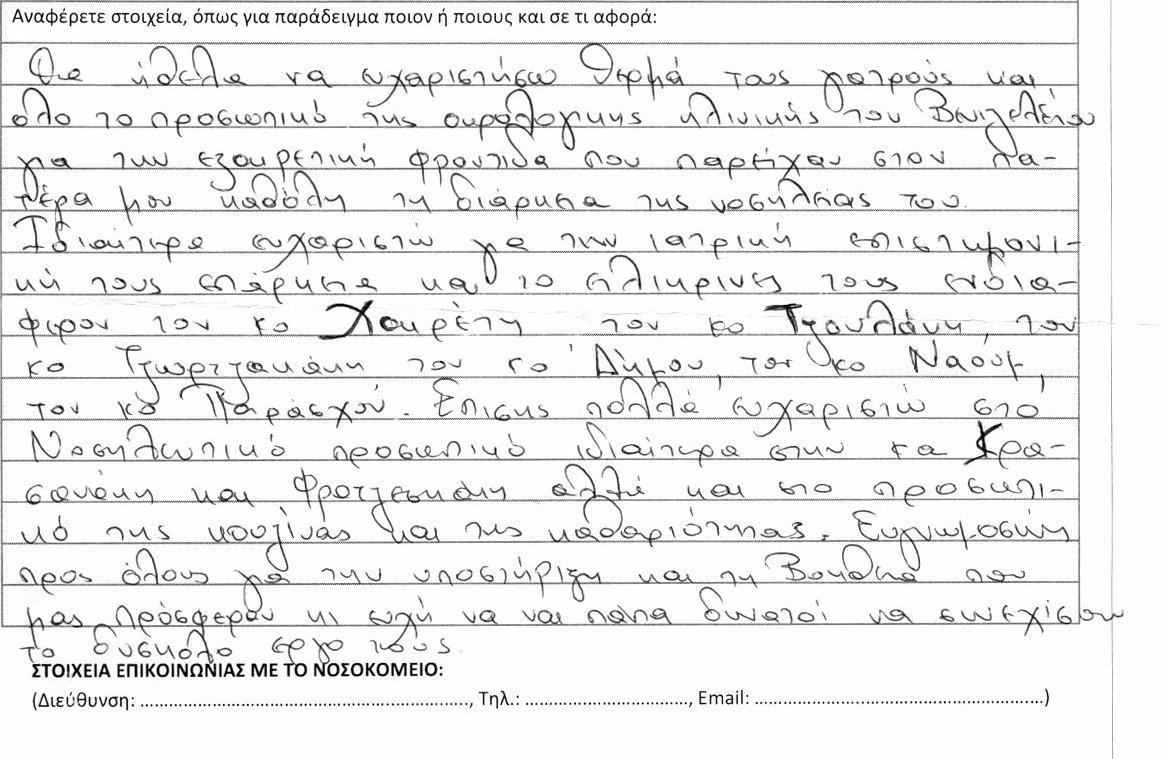 Αναφέρετε στοιχεία, όπως για παράδειγμα ποιον ή ποιους και σε τι αφορά:
Θα ήθελα να ευχαριστήσω θερμά τους γιατρούς και
όλο το προσωπικό της ουρολογικης κλινικής του Βενιζελείου
για την εξαιρετική φροντίδα που παρείχαν στον πα-
τέρα μου καθόλη τη διάρκεια της νοσηλείας του.
Ιδιαίτερα ευχαριστώ για την ιατρική επιστημονι-
κή τους επάρκεια και το ειλικρινες τους ενδια-
φερον τον κο Χαιρέτη τον κο Τζουλάκη, τον
κο Τζωρτζακάκη τον κο Δήμου, τον κο Ναούμ,
τον κο Παράσχου. Επισης πολλά ευχαριστώ στο
Νοσηλευτικό προσωπικό ιδιαίτερα στην κα Κρα-
σανάκη και Φραγκεσκάκη αλλά και στο προσωπι-
κό της κουζίνας και της καθαριότητας. Ευγνωμοσύνη
προς όλους για την υποστήριξη και τη Βοηθεια που
μας πρόσφεραν κι ευχή να ναι παντα δυνατοί να συνεχίσουν
το δυσκολο εργο τους.
ΣΤΟΙΧΕΙΑ ΕΠΙΚΟΙΝΩΝΙΑΣ ΜΕ ΤΟ ΝΟΣΟΚΟΜΕΙΟ:
(Διεύθυνση: ......................................................., Τηλ.: ..............................., Email: .....................................................)